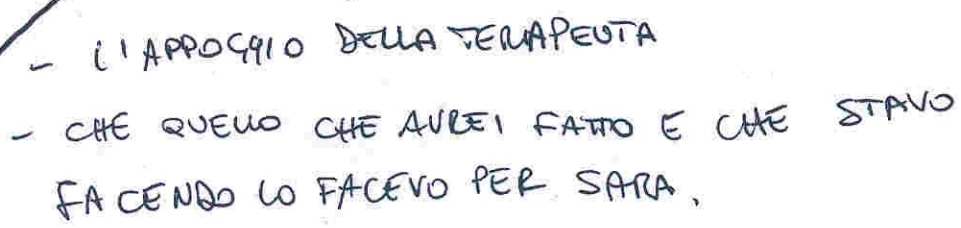 - L'APPOGGIO DELLA TERAPEUTA
- CHE QUELLO CHE AVREI FATTO E CHE STAVO
FACENDO LO FACEVO PER SARA.